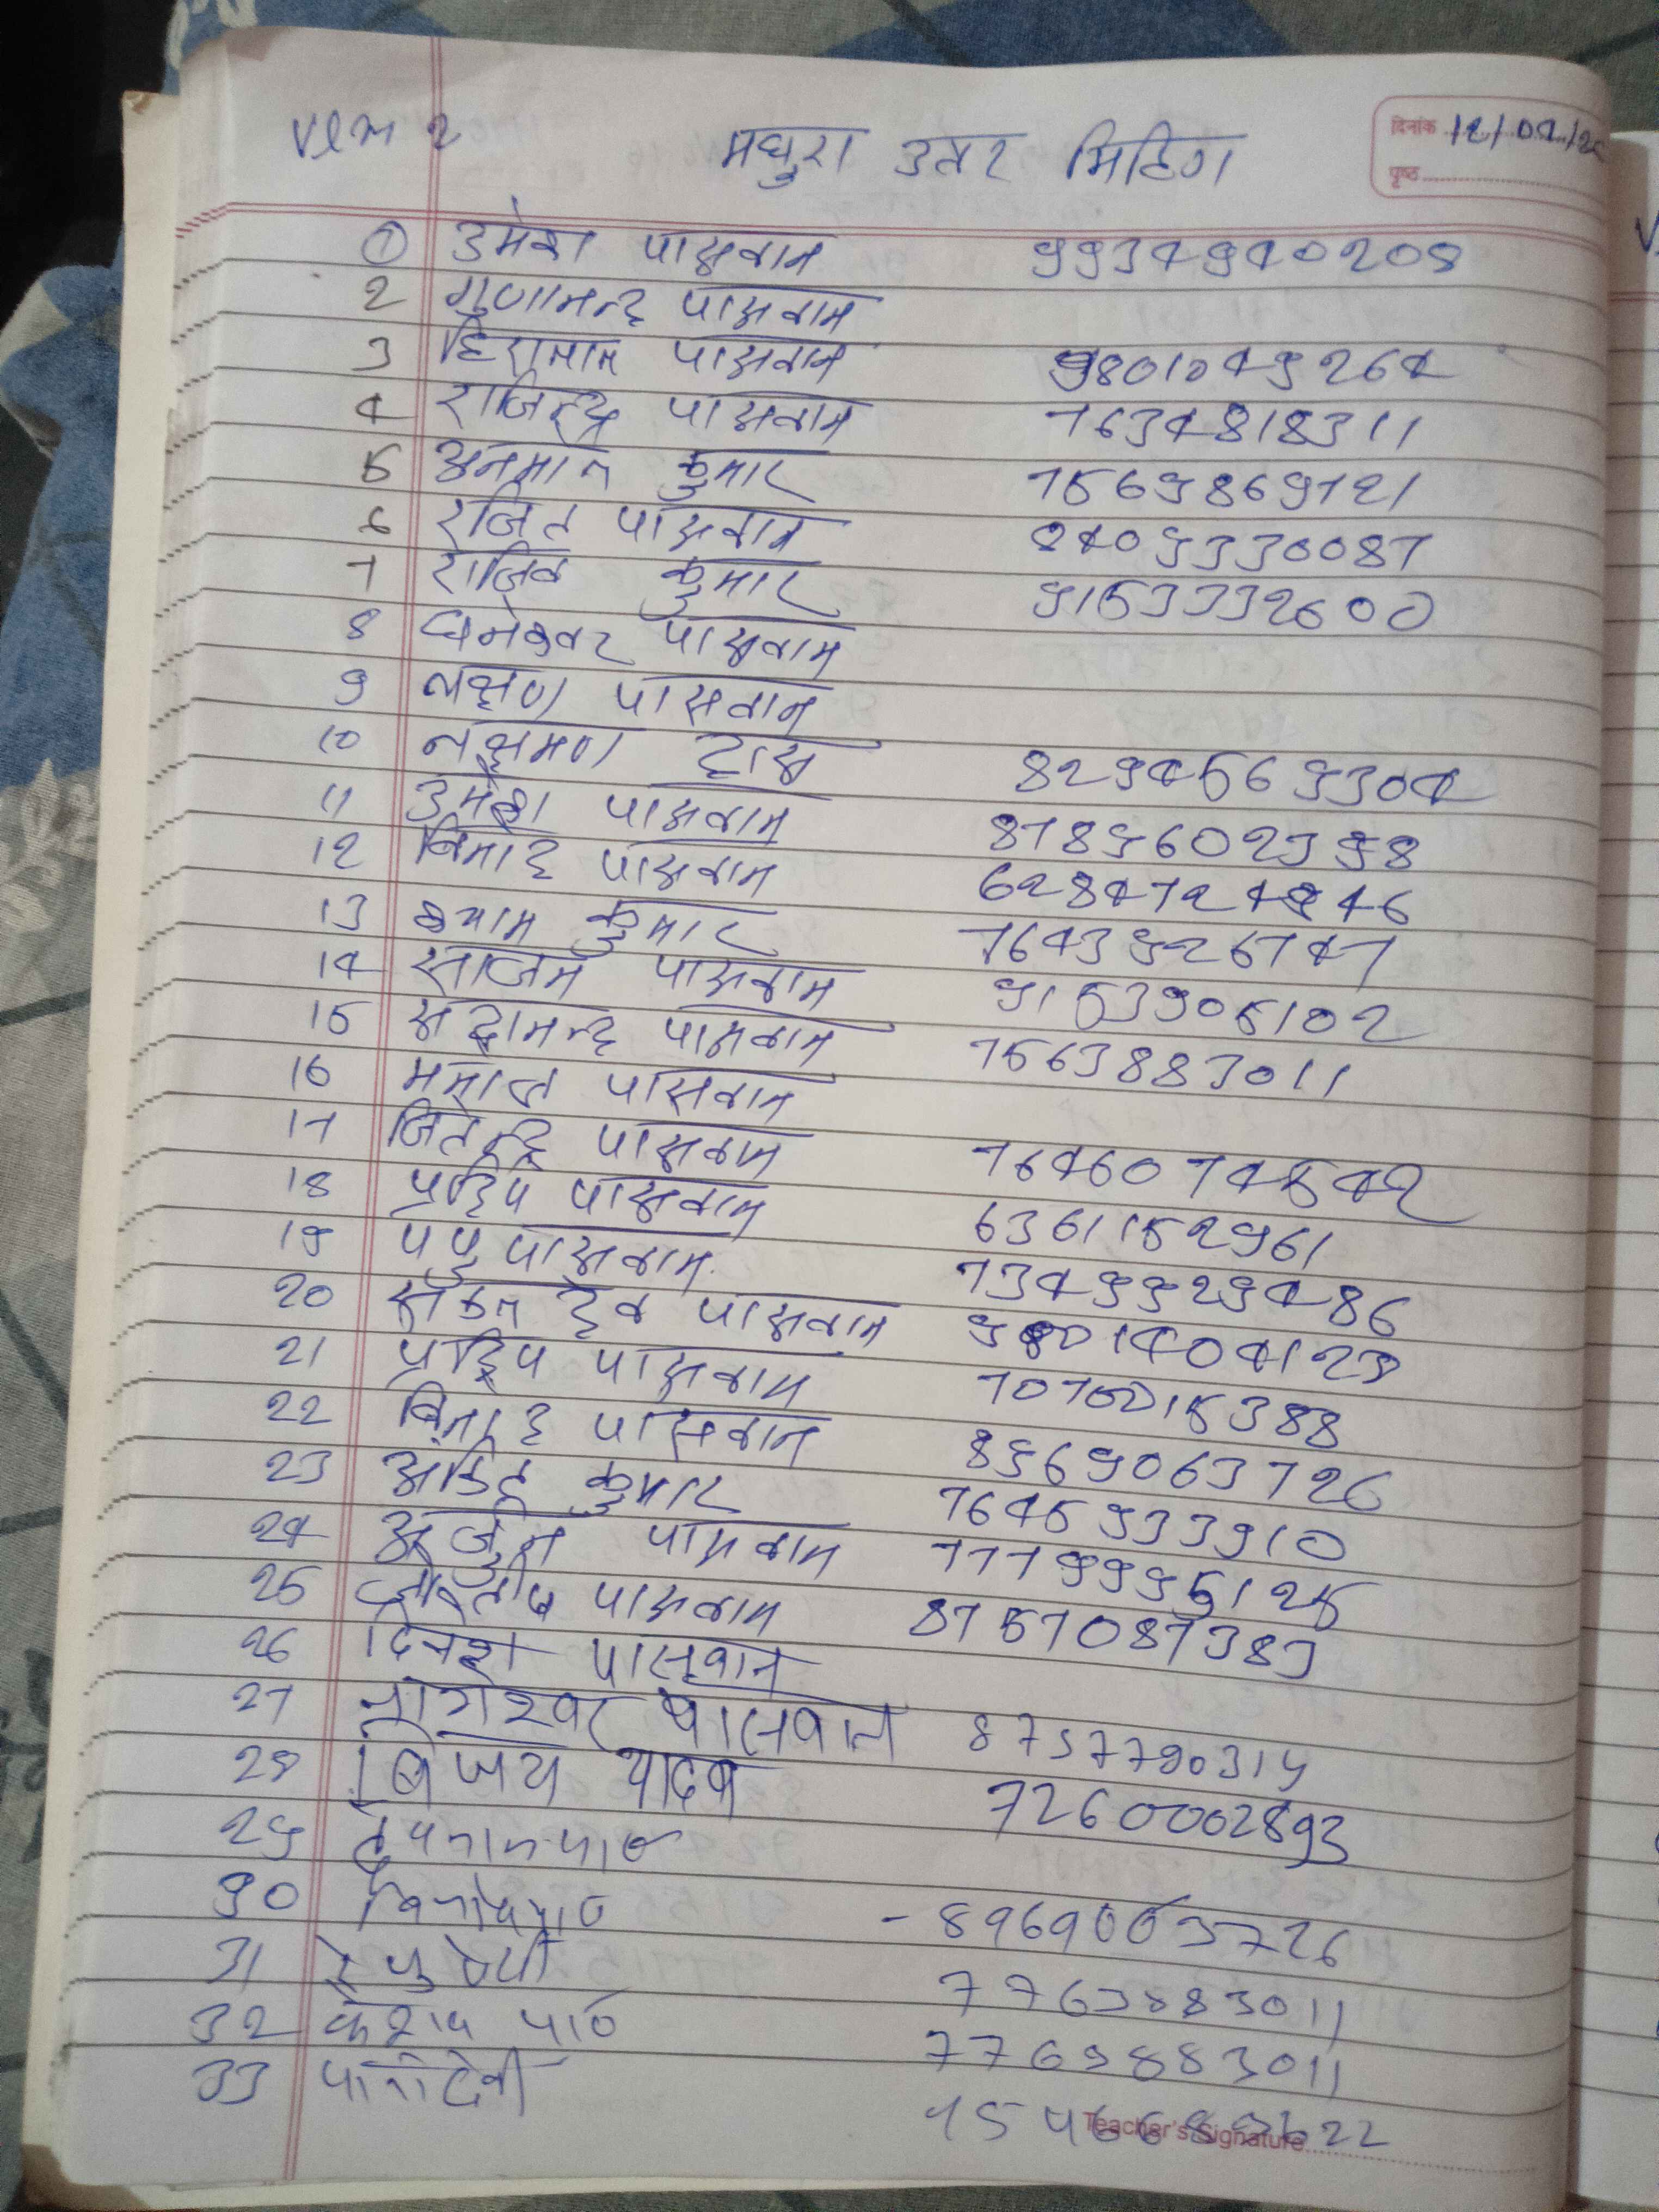 vlm 2 मधुरा उतर मिटिंग दिनांक 12/02/2
पृष्ठ
① उमेश पासवान 9934940208
2 गुणानन्द पासवान
3 हिरालाल पासवान 9801049264
4 राजिन्द्र पासवान 7634818311
5 अनमोल कुमार 7569869721
6 रंजित पासवान 8409330087
7 राजिव कुमार 9153332600
8 धनेश्वर पासवान
9 लक्षण पासवान
10 लक्षमण दास 8294569304
11 उमेश पासवान 8789602398
12 बिनोद पासवान 6284724846
13 श्याम कुमार 7643926747
14 साजन पासवान 9153905102
15 सदानन्द पासवान 7563883011
16 पासवान
17 जितेन्द्र पासवान 7646074542
18 प्रदिप पासवान 6361152961
19 पपु पासवान 7349929486
20 देव पासवान 9801404123
21 प्रदिप पासवान 7070015388
22 बिनोद पासवान 8969063726
23 अंकित कुमार 7645933910
24 अर्जुन पासवान 7779995125
25 पासवान 8757087383
26 दिनेश पासवान
27 नागेश्वर पासवान 8757790314
28 बिजय यादव 7260002893
29
30 - 8969003726
31 देवी 7763883011
32 केशव 7763883011
33 देवी
Teacher's Signature